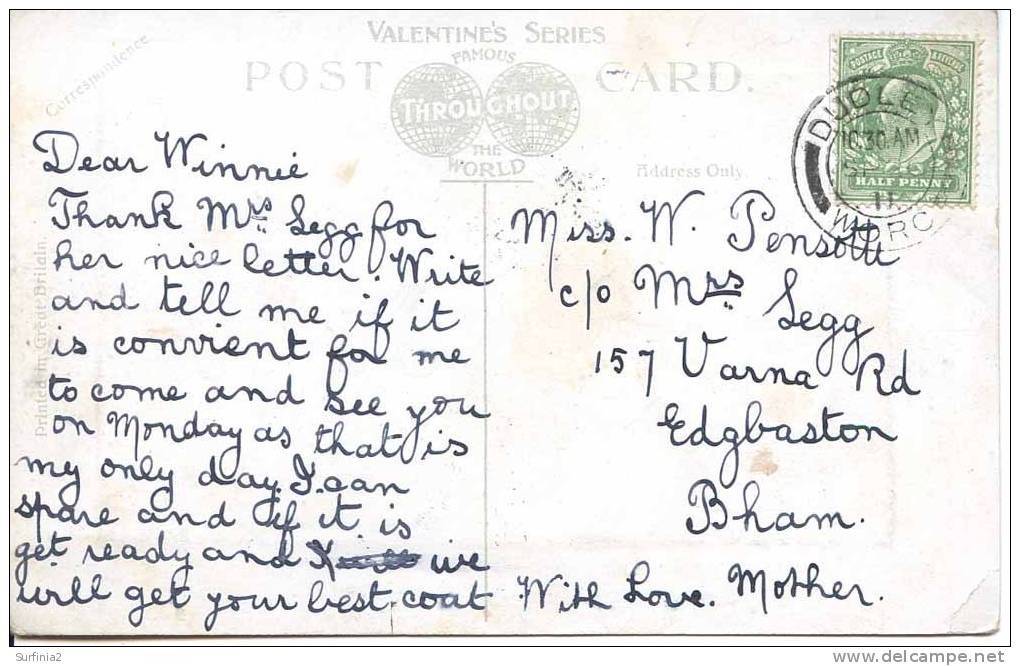 VALENTINE'S SERIES
FAMOUS
POST CARD.
THROUGHOUT
THE
WORLD
Correspondence
Address Only.
Printed in Great Britain.
HALF PENNY
POSTAGE
DUDLEY
10.30 AM
11
WORC
Dear Winnie
Thank Mrs Segg for
her nice letter. Write
and tell me if it
is convient for me
to come and see you
on Monday as that is
my only day I can
spare and if it is
get ready and we
will get your best coat
With Love. Mother.
Miss. W. Pensotti
c/o Mrs Segg
157 Varna Rd
Edgbaston
Bham.
Surfinia2
delcampe.net